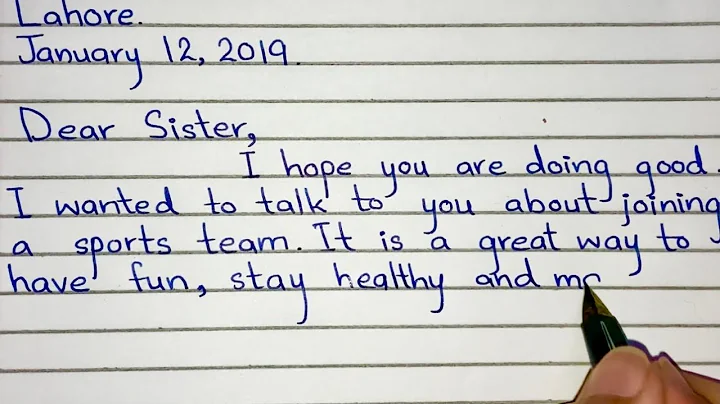 Lahore.
January 12, 2019.
Dear Sister,
I hope you are doing good.
I wanted to talk to you about joining
a sports team. It is a great way to
have fun, stay healthy and